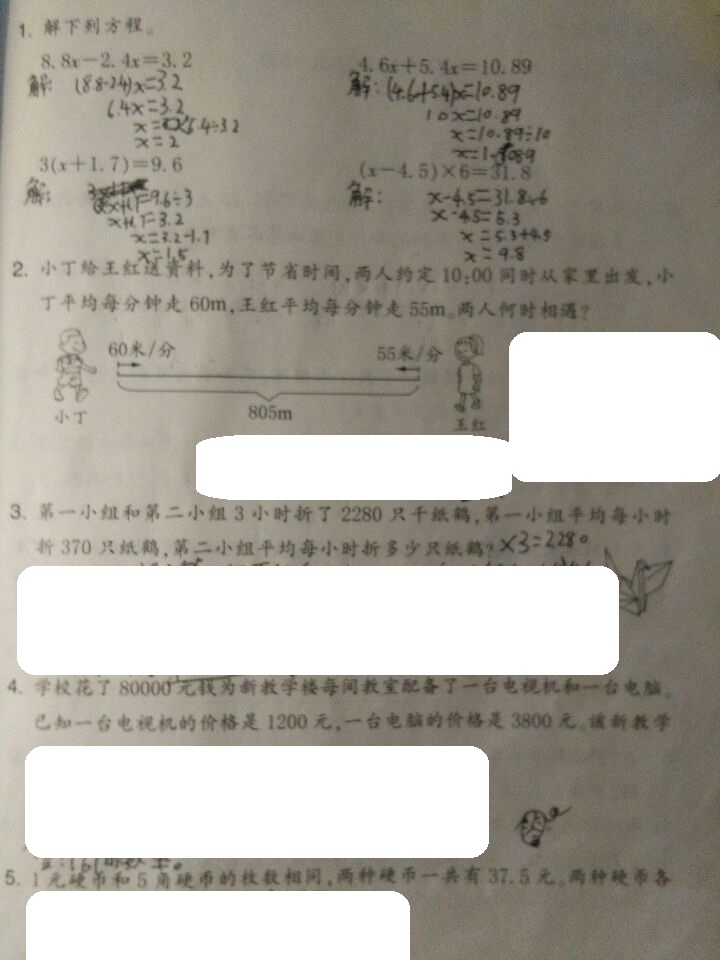 1. 解下列方程。
8.8x－2.4x＝3.2
4.6x＋5.4x＝10.89
解: (8.8-2.4)x=3.2
解: (4.6+5.4)x=10.89
6.4x=3.2
10x=10.89
6.4÷3.2
x=10.89÷10
x=2
3(x＋1.7)＝9.6
(x－4.5)×6＝31.8
解:
=9.6÷3
解: x-4.5=31.8÷6
=3.2
x-4.5=5.3
x=3.2-1.7
x=5.3+4.5
x=1.5
x=9.8
2. 小丁给王红送资料,为了节省时间,两人约定 10:00 同时从家里出发,小
丁平均每分钟走 60m,王红平均每分钟走 55m。两人何时相遇?
60米/分
55米/分
小丁
805m
王红
3. 第一小组和第二小组 3 小时折了 2280 只千纸鹤,第一小组平均每小时
折 370 只纸鹤,第二小组平均每小时折多少只纸鹤? ×3=2280
4. 学校花了 80000 元钱为新教学楼每间教室配备了一台电视机和一台电脑。
已知一台电视机的价格是 1200 元,一台电脑的价格是 3800 元。该新教学
5. 1 元硬币和 5 角硬币的枚数相同,两种硬币一共有 37.5 元。两种硬币各